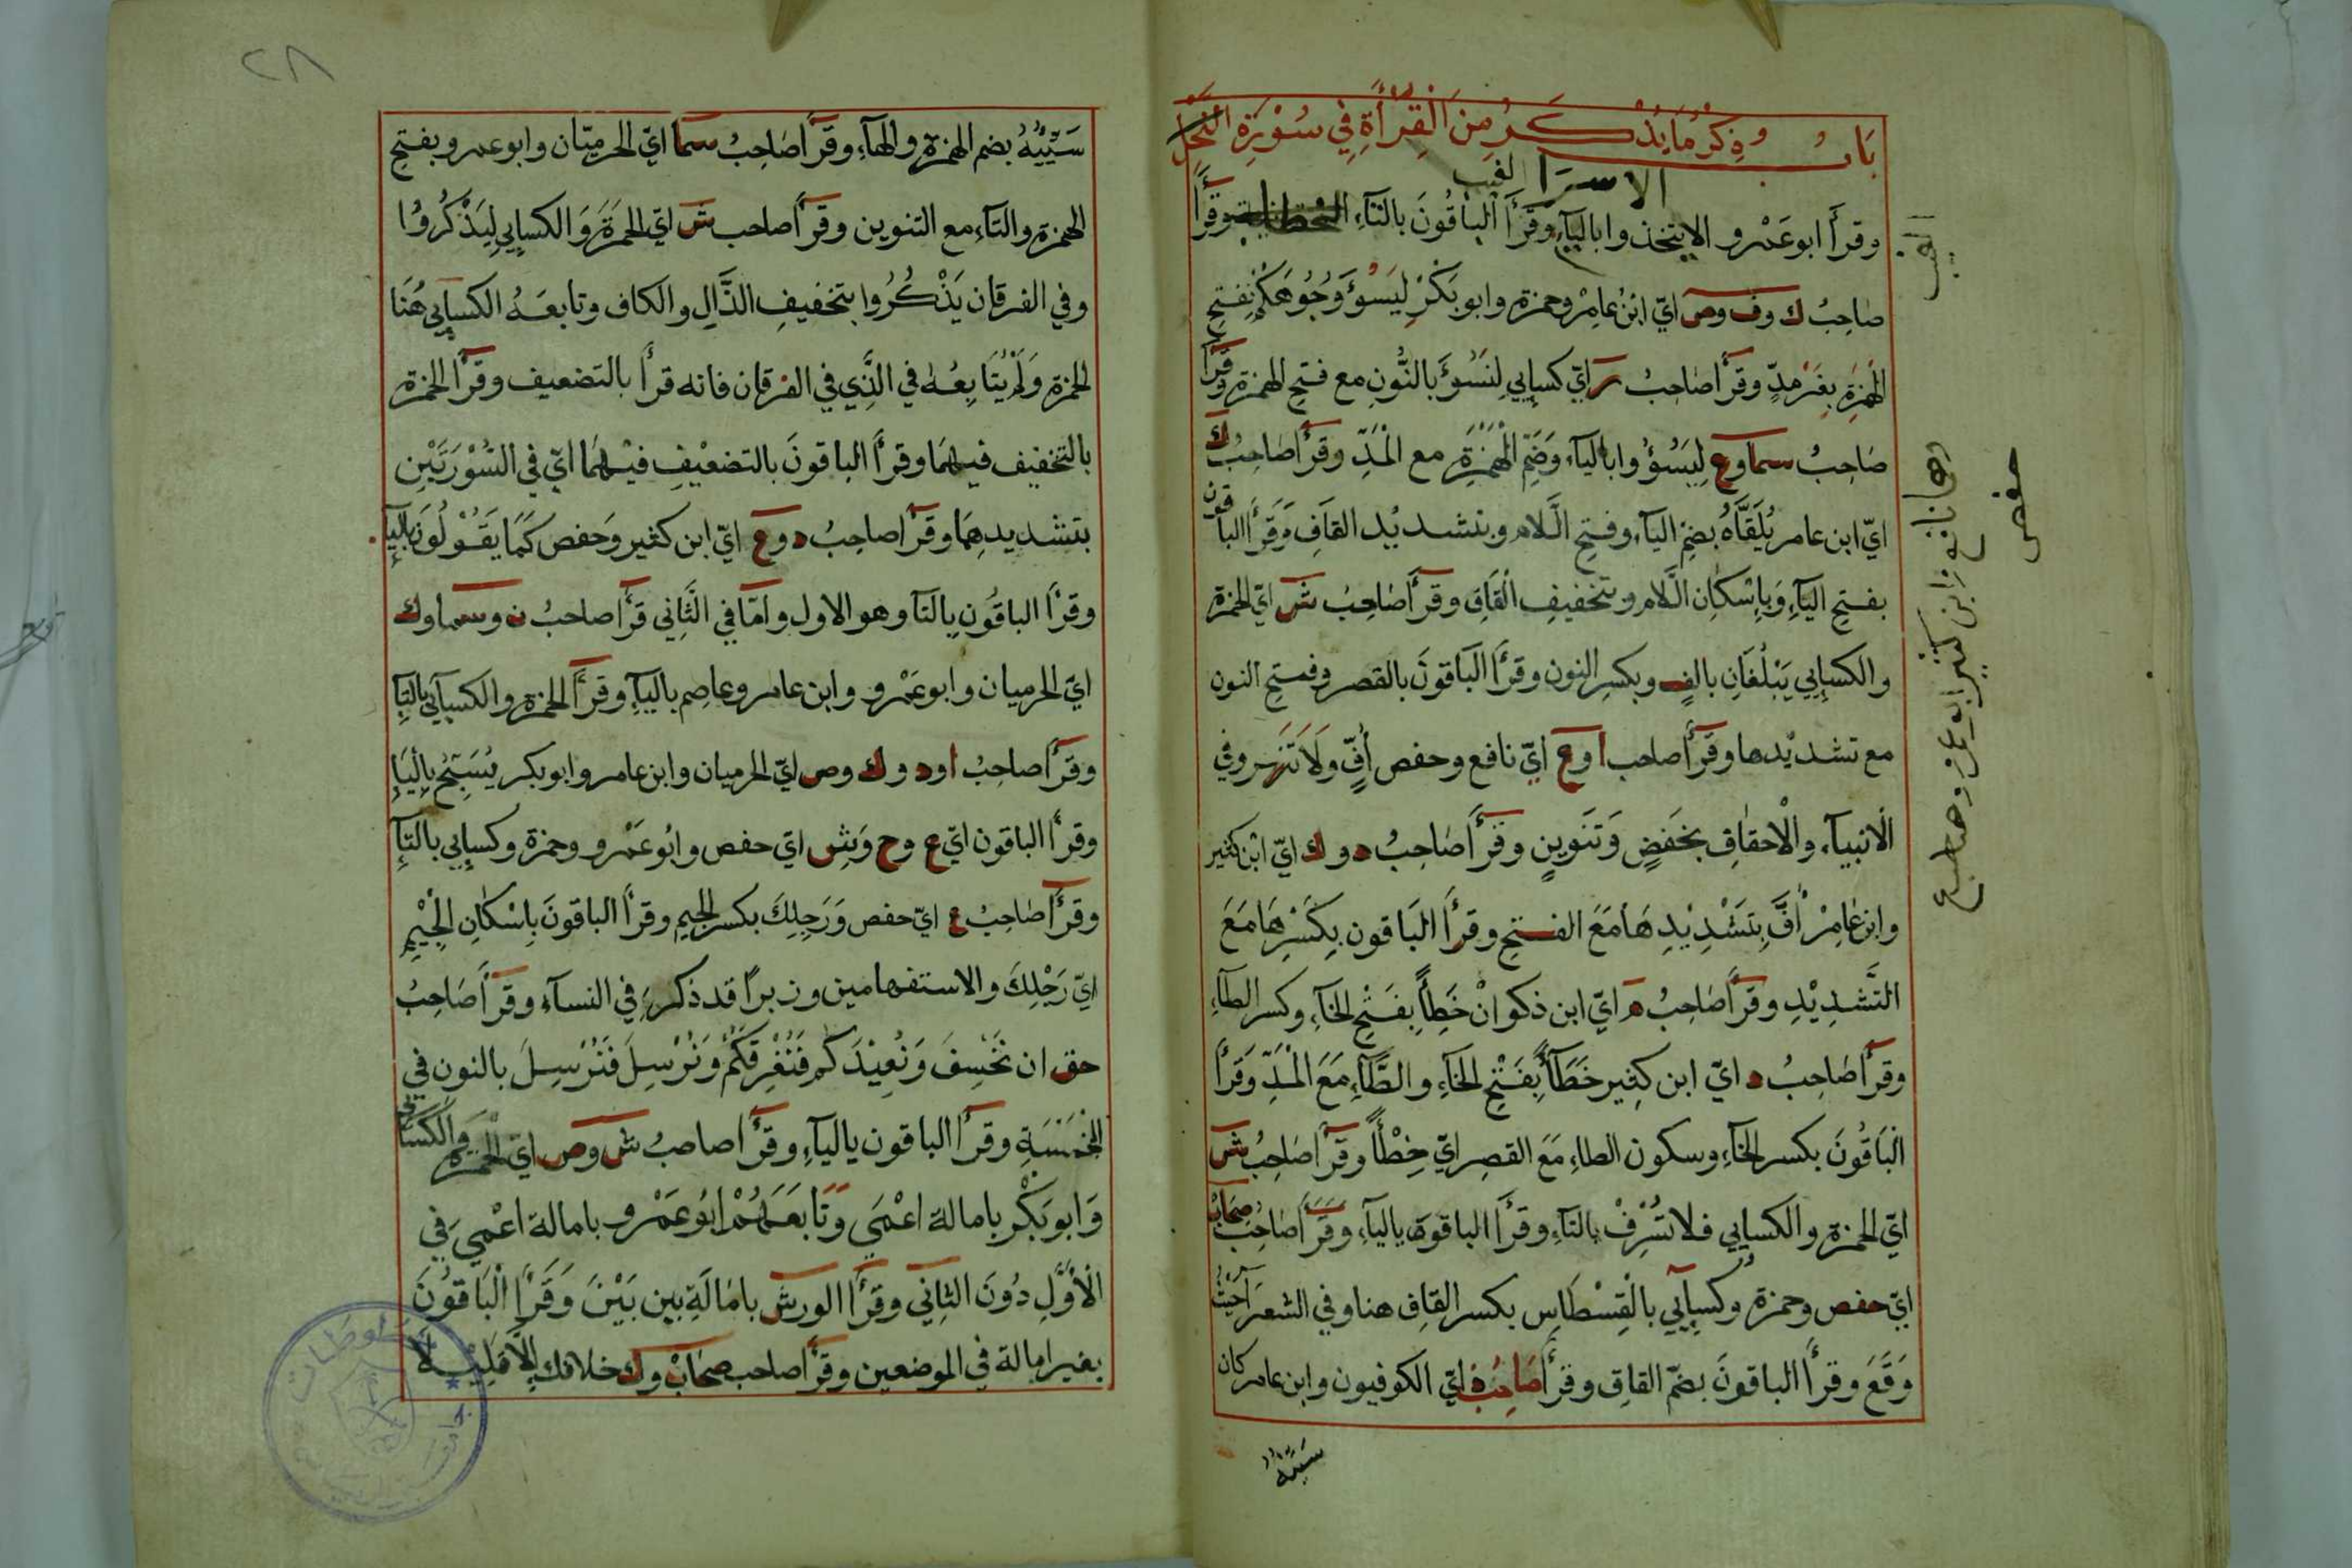 باب وذكر ما يذكر من القرأة في سورة النحل
الاسرا لغيب
وقرأ ابو عمرو الا يتخذوا بالياء وقرأ الباقون بالتاء وقرأ
صاحب ك وف وص اي ابن عامر وحمزة وابو بكر ليسؤ وجوهكم بفتح
الهمزة بغير مد وقرأ صاحب ر اي كسايي لنسؤ بالنون مع فتح الهمزة وقرأ
صاحب سما وع ليسؤوا بالياء وضم الهمزة مع المد وقرأ صاحب ك
اي ابن عامر يلقاه بضم الياء وفتح اللام وبتشديد القاف وقرأ الباقون
بفتح الياء وباسكان اللام وبتخفيف القاف وقرأ صاحب ش اي الحمزة
والكسايي يبلغان بالف وبكسر النون وقرأ الباقون بالقصر وفتح النون
مع تشديدها وقرأ صاحب ا وع اي نافع وحفص اف ولا تنهر وفي
الانبياء والاحقاف بخفض وتنوين وقرأ صاحب د وك اي ابن كثير
وابن عامر اف بتشديدها مع الفتح وقرأ الباقون بكسرها مع
التشديد وقرأ صاحب م اي ابن ذكوان خطأ بفتح الخاء وكسر الطاء
وقرأ صاحب د اي ابن كثير خطآ بفتح الخاء والطاء مع المد وقرأ
الباقون بكسر الخاء وسكون الطاء مع القصر اي خطأ وقرأ صاحب ش
اي الحمزة والكسايي فلا تسرف بالتاء وقرأ الباقون بالياء وقرأ صاحب صحاب
اي حفص وحمزة وكسايي بالقسطاس بكسر القاف هنا وفي الشعرا حيث
وقع وقرأ الباقون بضم القاف وقرأ صاحب ذ اي الكوفيون وابن عامر كان
سيئه
حفص
٢٨
سيئه بضم الهمزة والهاء وقرأ صاحب سما اي الحرميان وابو عمرو بفتح
الهمزة والتاء مع التنوين وقرأ صاحب ش اي الحمزة والكسايي ليذكروا
وفي الفرقان يذكروا بتخفيف الذال والكاف وتابعه الكسايي هنا
الحمزة ولم يتابعه في الذي في الفرقان فانه قرأ بالتضعيف وقرأ الحمزة
بالتخفيف فيهما وقرأ الباقون بالتضعيف فيهما اي في السورتين
بتشديدهما وقرأ صاحب د وع اي ابن كثير وحفص كما يقولون بالياء
وقرأ الباقون بالتا وهو الاول واما في الثاني قرأ صاحب ن وسما وك
اي الحرميان وابو عمرو وابن عامر وعاصم بالياء وقرأ الحمزة والكسايي بالتا
وقرأ صاحب ا ود وك وص اي الحرميان وابن عامر وابو بكر يسبح بالياء
وقرأ الباقون اي ع وح وش اي حفص وابو عمرو وحمزة وكسايي بالتاء
وقرأ صاحب ع اي حفص ورجلك بكسر الجيم وقرأ الباقون باسكان الجيم
اي رجلك والاستفهامين وزبرا قد ذكر في النساء وقرأ صاحب
حق ان نخسف ونعيدكم فنغرقكم ونرسل فنرسل بالنون في
الخمسة وقرأ الباقون بالياء وقرأ صاحب ش وص اي الحمزة والكسايي
وابو بكر بامالة اعمي وتابعهم ابو عمرو بامالة اعمي في
الاول دون الثاني وقرأ الورش بامالة بين بين وقرأ الباقون
بغير امالة في الموضعين وقرأ صاحب صحاب وك خلافك الا قليلا